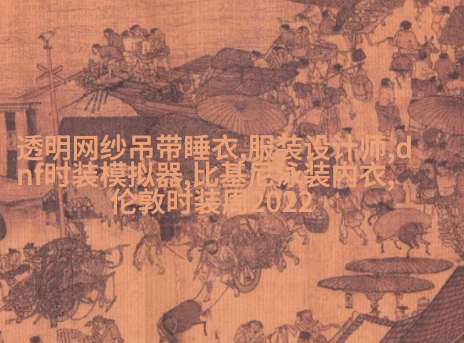 透明网纱吊带睡衣,服装设计师,d
nf时装模拟器,比基尼泳装内衣,
伦敦时装周2022